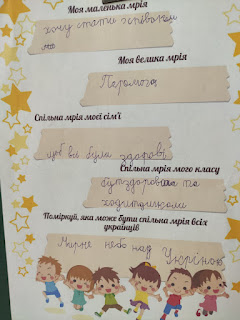 Моя маленька мрія
хочу стати співачкою
Моя велика мрія
Перемога
Спільна мрія моєї сім'ї
щоб всі були здорові
Спільна мрія мого класу
бути здоровими та
Поміркуй, яка може бути спільна мрія всіх
українців
Мирне небо над Україною